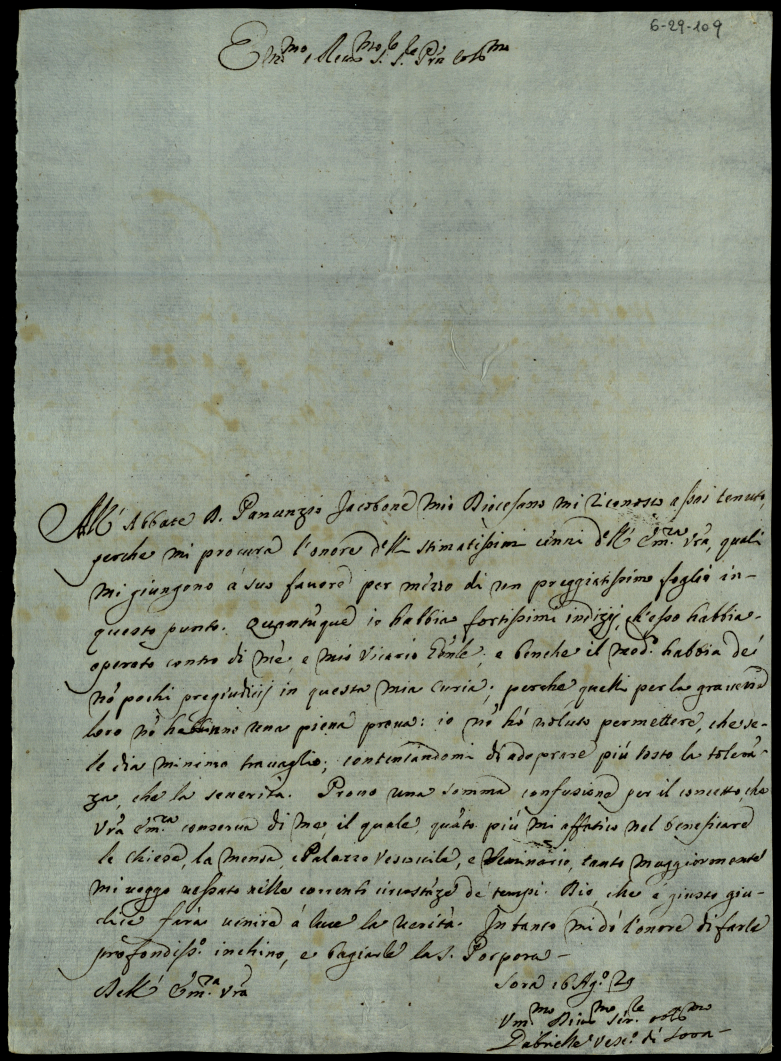 6-29-109
Em.mo e Rev.mo Sig.re Sig.re P͠rn Col.mo
All' Abbate D. Panunzio Jacobone mio Diocesano mi riconosco assai tenuto,
perche mi procura l'onore delli stimatissimi cenni dell' Em.za V͠ra, quali
mi giungono á suo favore per mezzo di un preggiatissimo foglio in
questo punto. Quantuq̃ue io habbia fortissimi indizij, ch'esso habbia
operato contro di mè, e mio Vicario G͠nle, e benche il med.o habbia de'
nõ pochi pregiudizij in questa mia Curia; perche quelli per la gravezza
loro nõ habbiano una piena prova: io nõ hó voluto permettere, che se-
le dia minimo travaglio; contentãdomi di adoprare più tosto la tolerã-
za, che la severità. Provo una somma confusione per il concetto, che
V͠ra Em.za conserva di me, il quale, quãto più mi affatico nel beneficare
le chiese, la mensa e Palazzo Vescovile, e Seminario, tanto maggiormente
mi veggo vessato nelle correnti circostãze de' tempi. Dio, che é giusto giu-
dice farà venire á luce la verità. Intanto mi dó l'onore di farle
profondiss.o inchino, e bagiarle la S. Porpora-
Dell' Em.za V͠ra
Sora 16 Ag.o 29
Um.mo Div.mo Ser.re obb.mo
Gabrielle Vesc.o di Sora